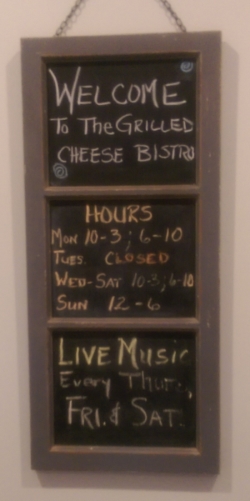 WELCOME
To The GRILLED
CHEESE BISTRO
HOURS
MON 10-3; 6-10
TUES. CLOSED
WED-SAT 10-3; 6-10
SUN 12-6
LIVE MUSIC
Every Thurs,
FRI. & SAT.